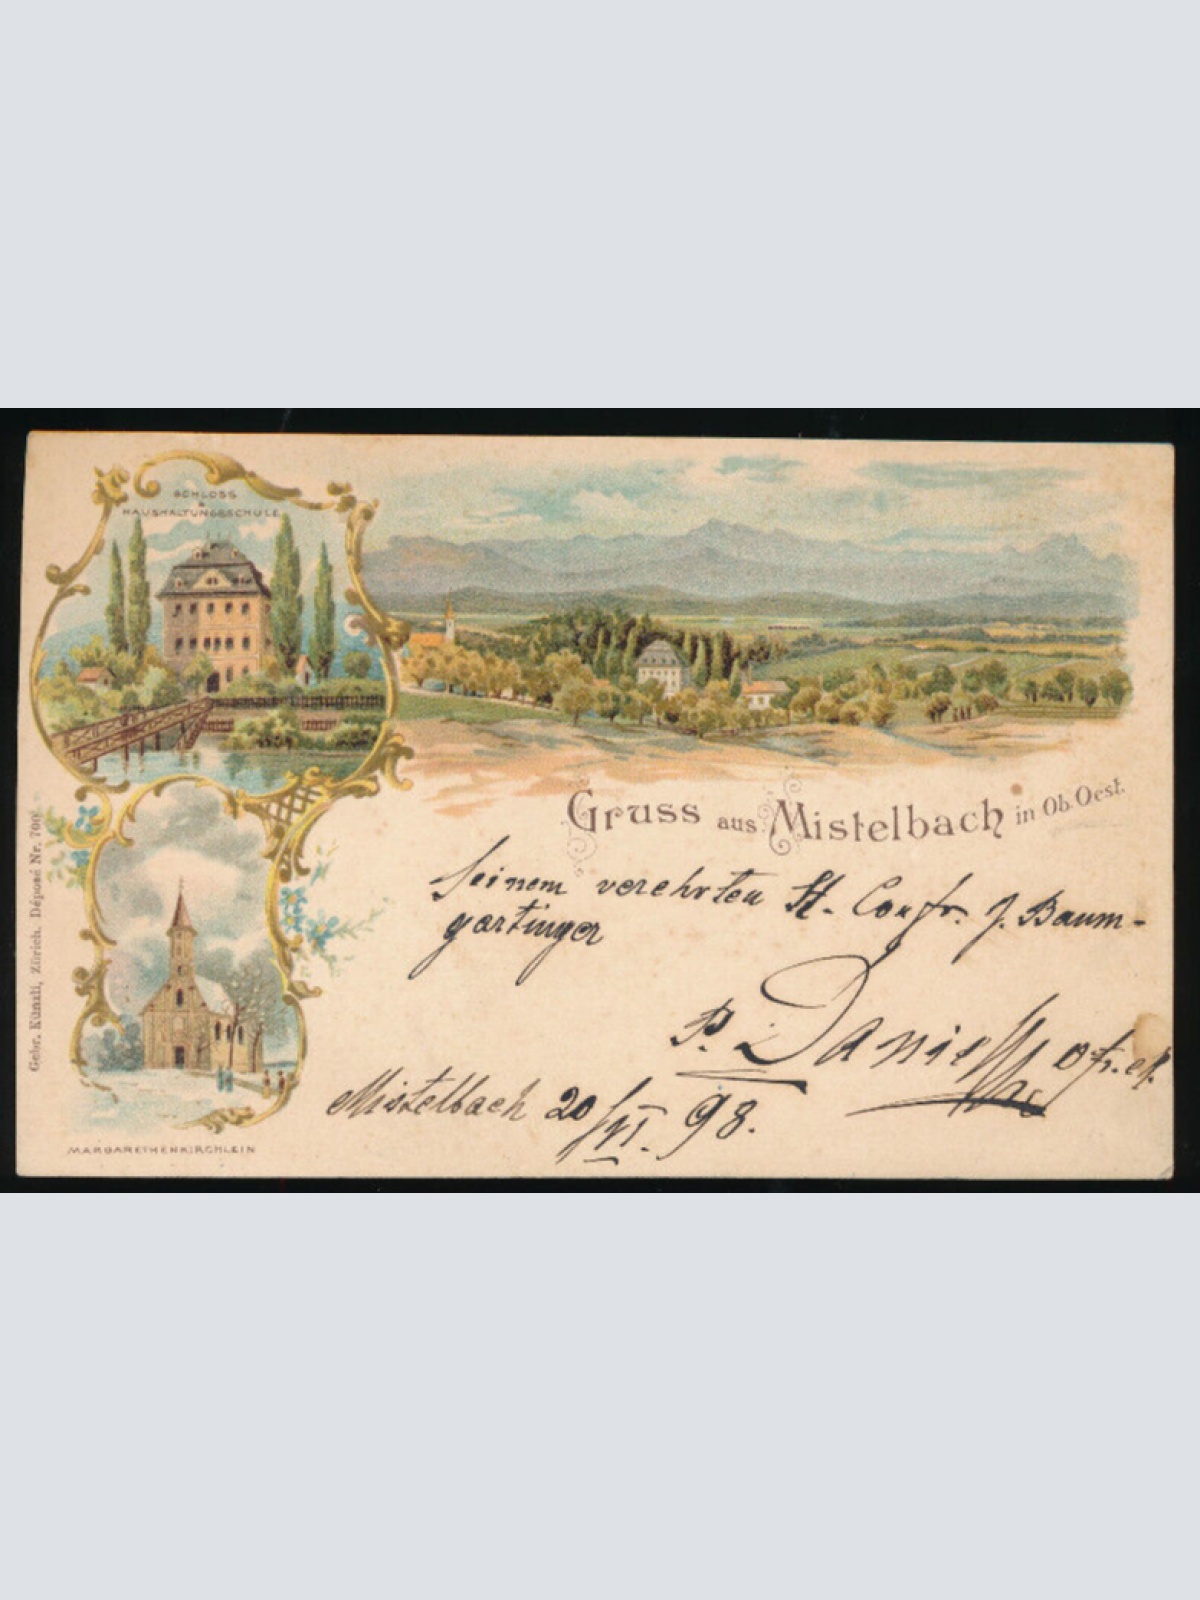 SCHLOSS
&
HAUSHALTUNGSSCHULE
Gruss aus Mistelbach in Ob. Oest.
Seinem verehrten St. Confr. J. Baum-
gartinger
P. Daniel
Mistelbach 20/VI. 98.
MARGARETHENKIRCHLEIN
Gebr. Künzli, Zürich. Déposé Nr. 700